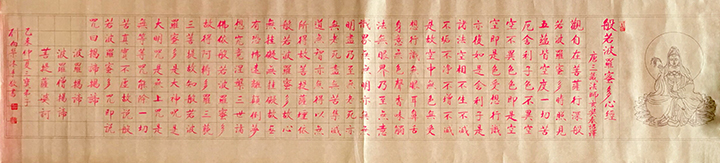 般若波羅蜜多心經
唐三藏法師玄奘奉詔譯
觀自在菩薩行深般
若波羅蜜多時照見
五蘊皆空度一切苦
厄舍利子色不異空
空不異色色即是空
空即是色受想行識
亦復如是舍利子是
諸法空相不生不滅
不垢不淨不增不減
是故空中無色無受
想行識無眼耳鼻舌
身意無色聲香味觸
法無眼界乃至無意
識界無無明亦無無
明盡乃至無老死亦
無老死盡無苦集滅
道無智亦無得以無
所得故菩提薩埵依
般若波羅蜜多故心
無罣礙無罣礙故無
有恐怖遠離顛倒夢
想究竟涅槃三世諸
佛依般若波羅蜜多
故得阿耨多羅三藐
三菩提故知般若波
羅蜜多是大神咒是
大明咒是無上咒是
無等等咒能除一切
苦真實不虛故說般
若波羅蜜多咒即說
咒曰揭諦揭諦
波羅揭諦
波羅僧揭諦
菩提薩婆訶